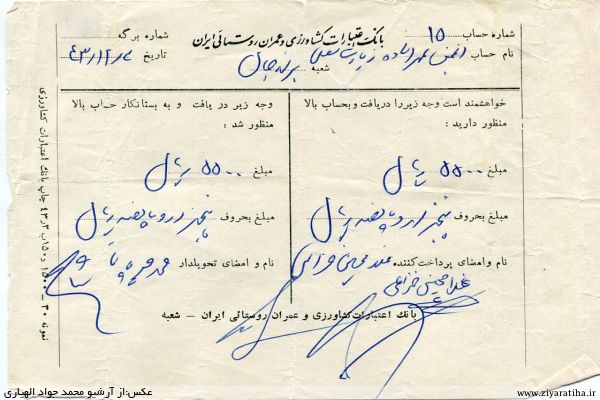 شماره حساب ۱۵
بانک اعتبارات کشاورزی و عمران روستائی ایران
شماره برگه
نام حساب انجمن عمران ده زیارت سفلی
شعبه برازجان
تاریخ
خواهشمند است وجه زیر را دریافت و بحساب بالا
منظور دارید :
مبلغ ۵۵۰۰ ریال
مبلغ بحروف پنجهزار و پانصد ریال
نام و امضای پرداخت کننده
غلامحسین خزاعی
وجه زیر در یافت و به بستانکار حساب بالا
منظور شد :
مبلغ ۵۵۰۰ ریال
مبلغ بحروف پنجهزار و پانصد ریال
نام و امضای تحویلدار
بانک اعتبارات کشاورزی و عمران روستائی ایران – شعبه
نمونه ۳۰ –
چاپ بانک اعتبارات کشاورزی
عکس:از آرشیو محمد جواد الهیاری
www.ziyaratiha.ir